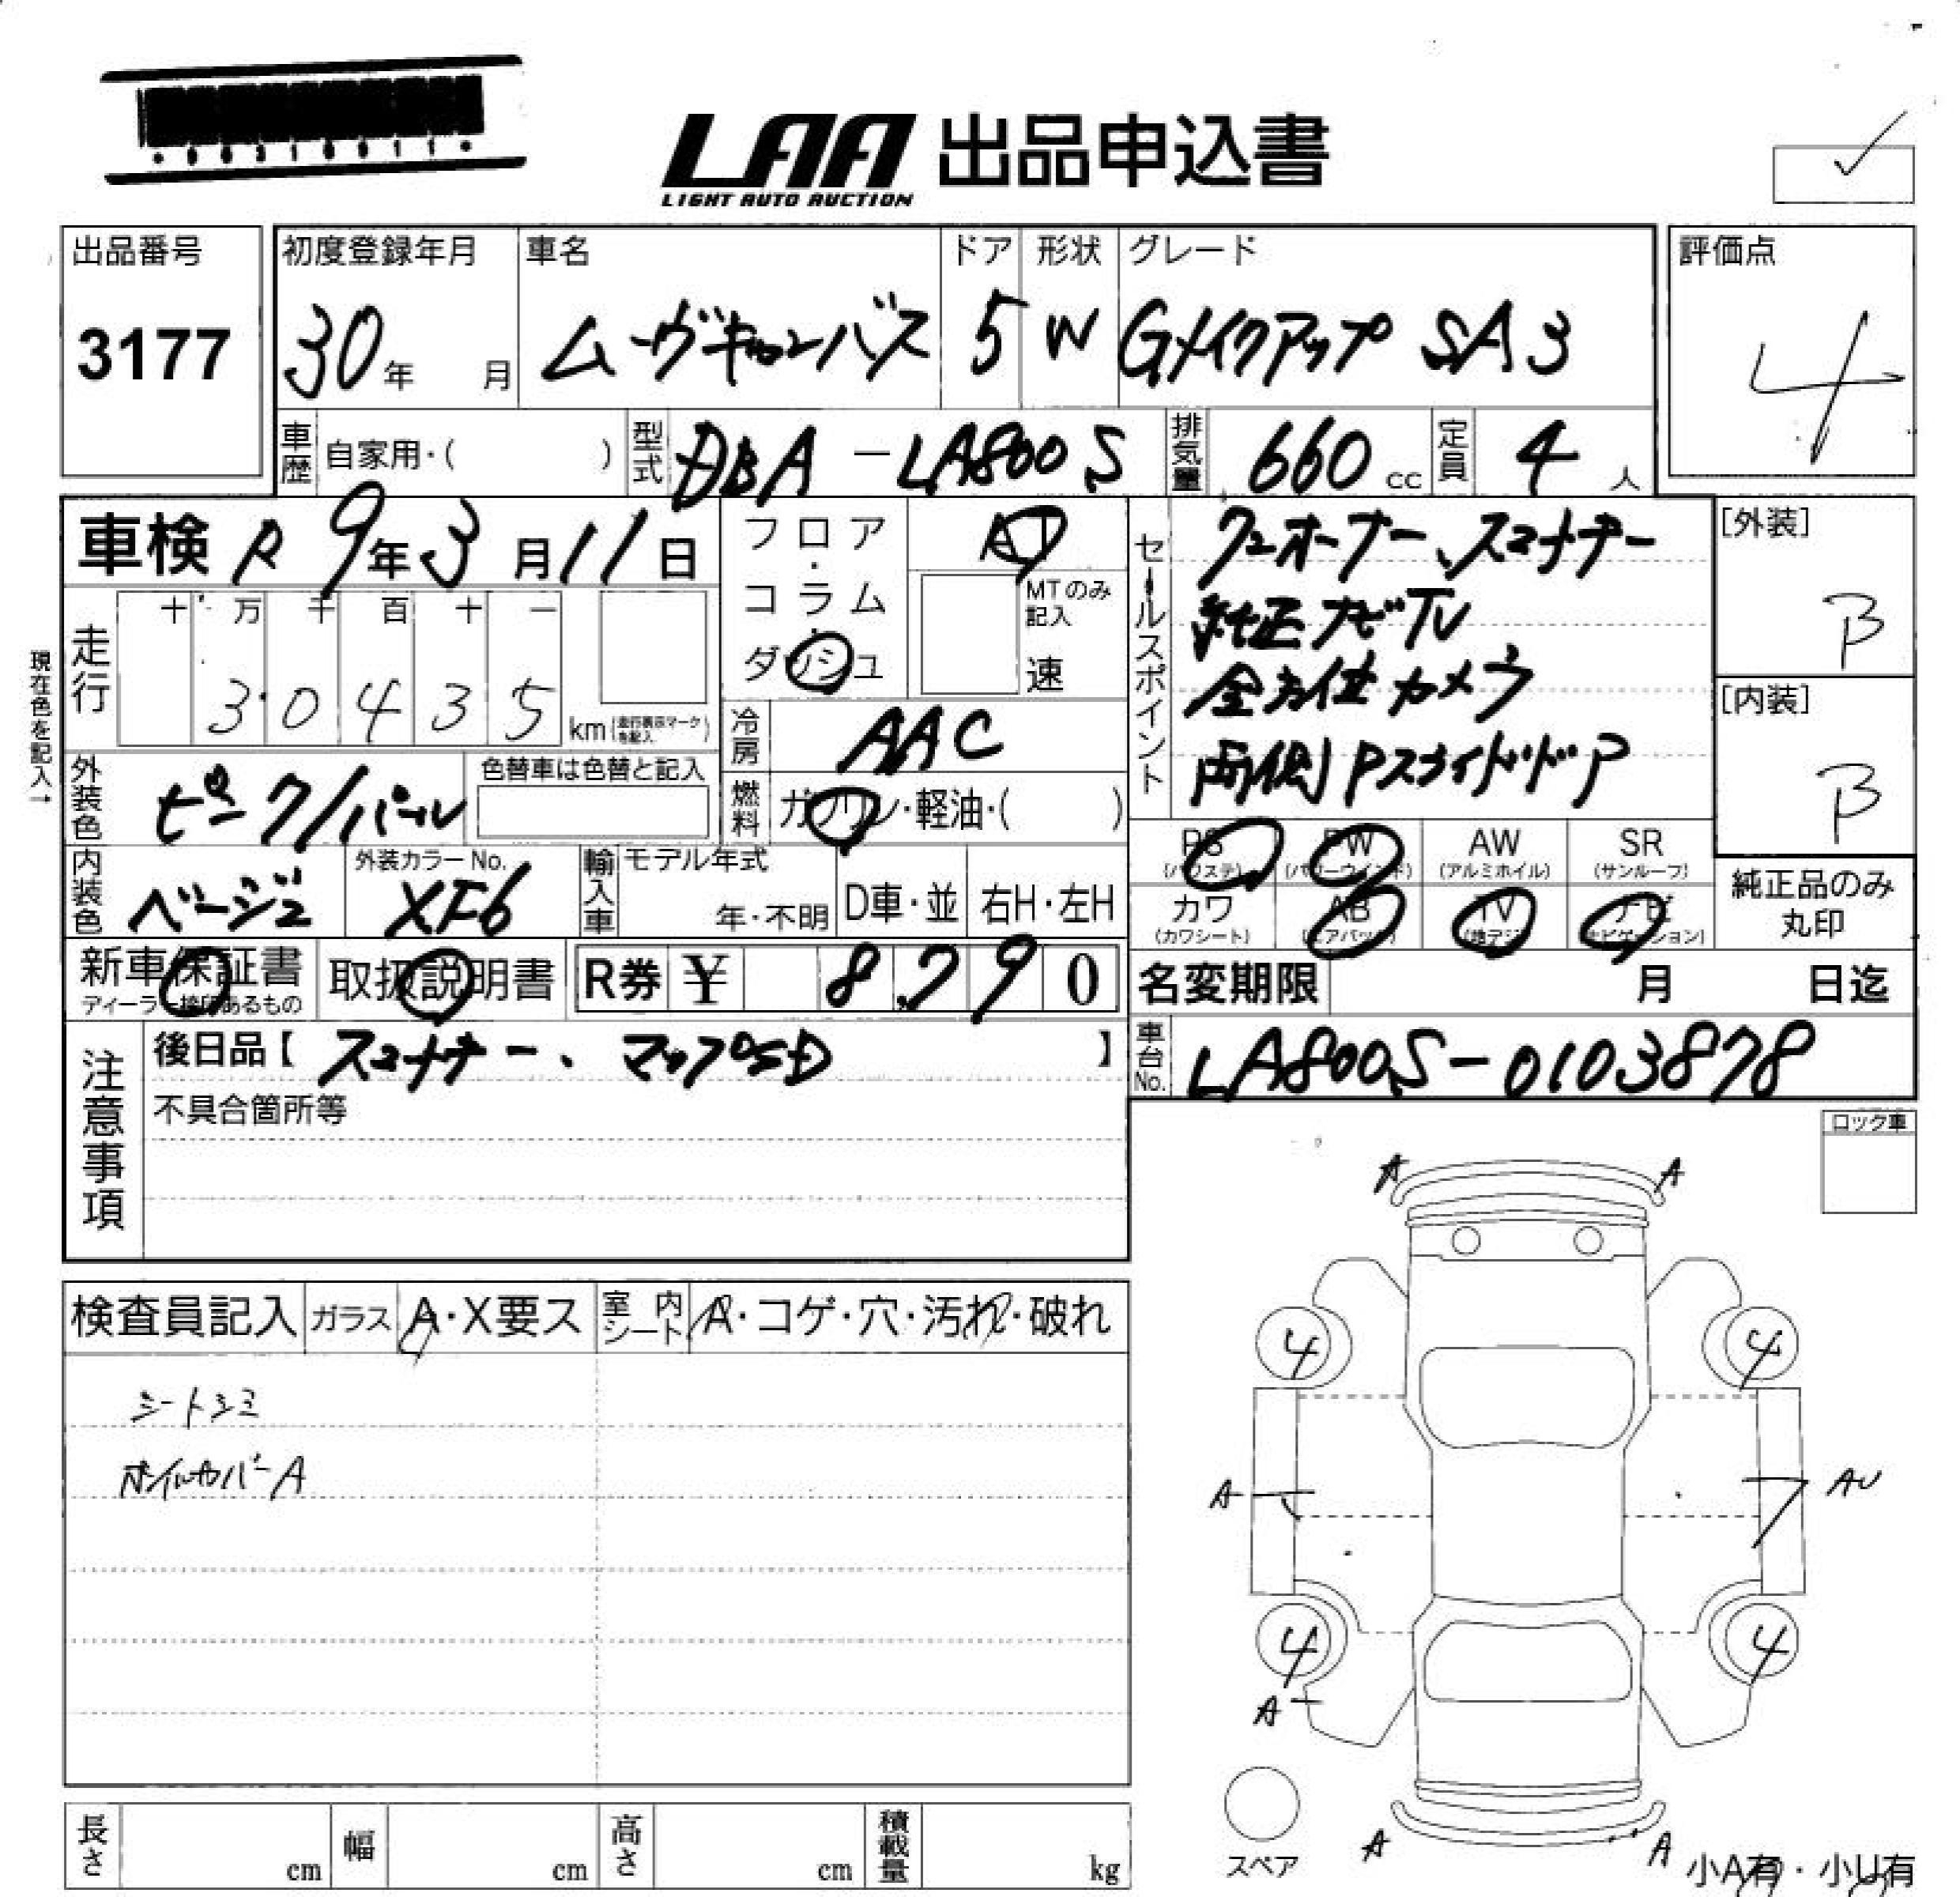 LAA 出品申込書
LIGHT AUTO AUCTION
出品番号
3177
初度登録年月
30年 月
車名
ムーヴキャンバス
ドア
5
形状
W
グレード
Gメイクアップ SA3
評価点
4
車歴 自家用・( )
型式 DBA-LA800S
排気量 660 cc
定員 4 人
車検 R 9年3月11日
走行
十 万 千 百 十 一
3 0 4 3 5
km(走行表示マークを記入)
現在色を記入→
フロア・コラム・ダッシュ
AT
MTのみ記入
速
冷房 AAC
燃料 ガソリン・軽油・( )
セールスポイント
ワンオーナー、スマートキー
純正ナビTV
全方位カメラ
両側Pスライドドア
[外装]
B
[内装]
B
外装色 ピンク/パール
色替車は色替と記入
内装色 ベージュ
外装カラーNo.
XF6
輸入車
モデル年式
年・不明
D車・並
右H・左H
PS (パワステ)
PW (パワーウインド)
AW (アルミホイル)
SR (サンルーフ)
カワ (カワシート)
AB (エアバッグ)
TV (地デジ)
ナビ (ナビゲーション)
純正品のみ丸印
新車保証書
ディーラー捺印あるもの
取扱説明書
R券 ¥ 8,790
名変期限 月 日迄
車台No. LA800S-0103878
注意事項
後日品【 スマートキー、マップSD 】
不具合箇所等
ロック車
検査員記入
ガラス A・X要ス
室内シート A・コゲ・穴・汚れ・破れ
シートシミ
ホイルカバーA
A A
4 4
A AU
4 4
A
スペア
A A
小A有・小U有
長さ cm
幅 cm
高さ cm
積載量 kg